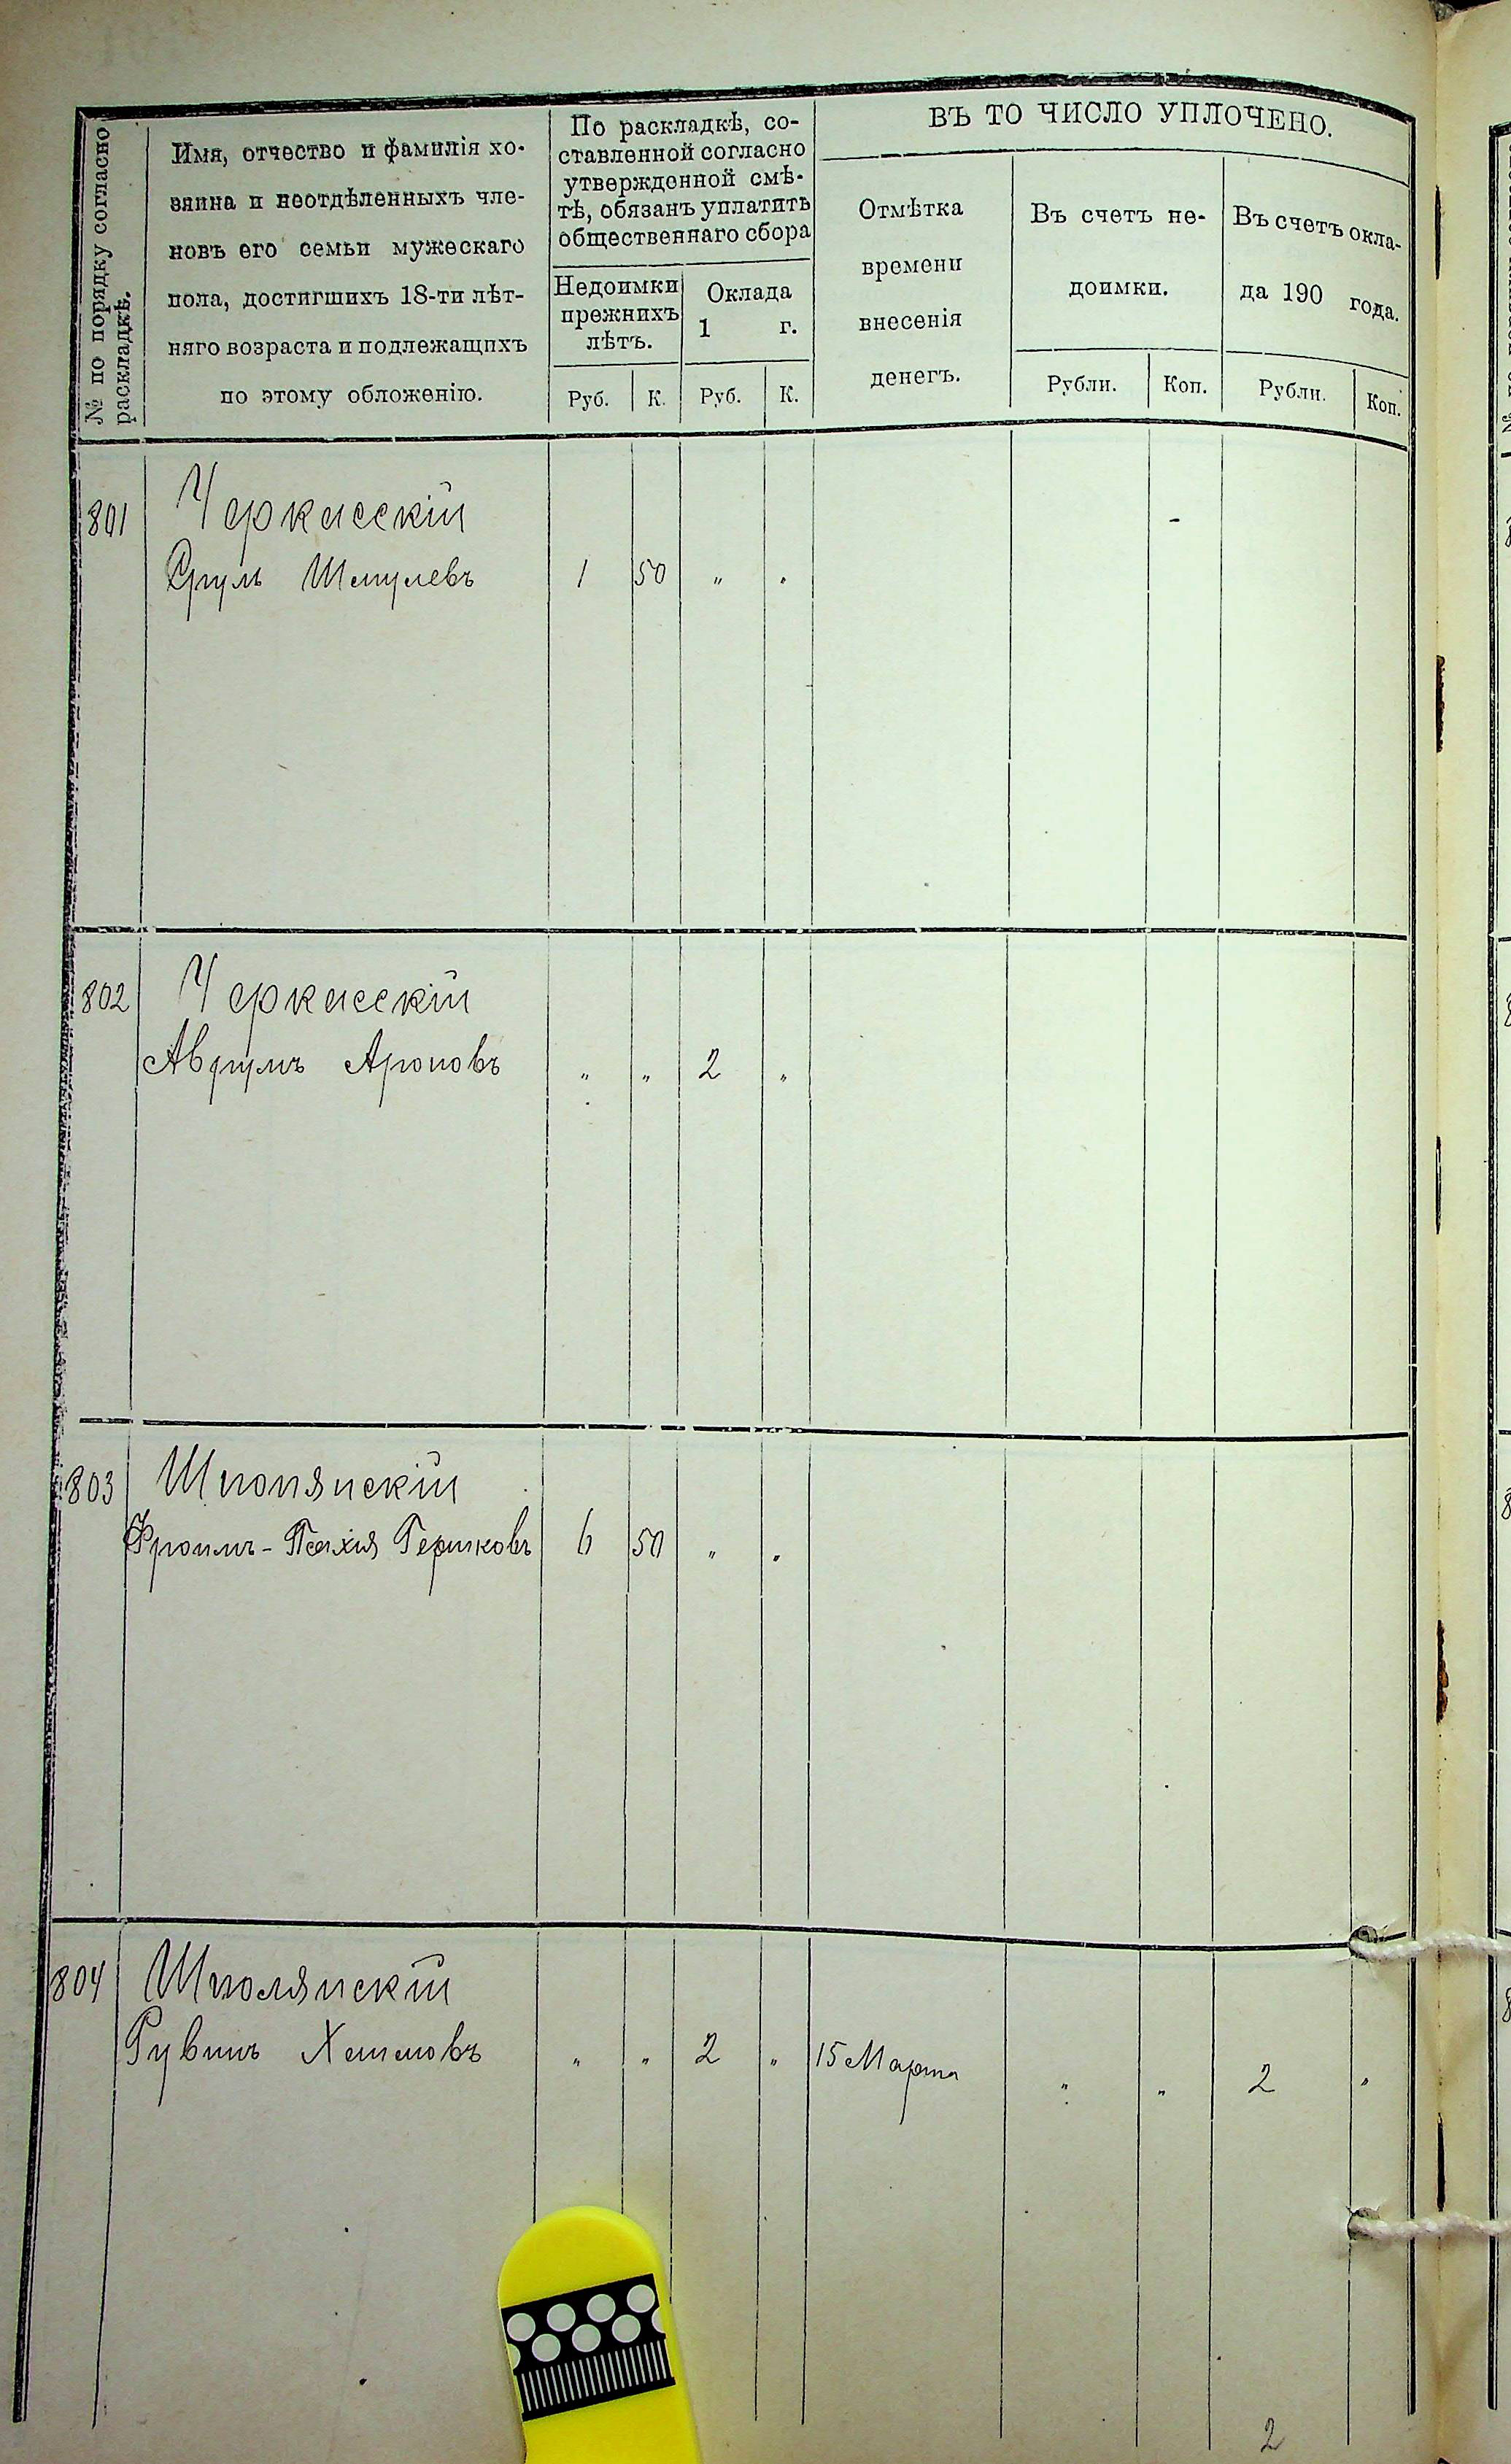 № по порядку согласно
раскладкѣ.
Имя, отчество и фамилія хо-
зяина и неотдѣленныхъ чле-
новъ его семьи мужескаго
пола, достигшихъ 18-ти лѣт-
няго возраста и подлежащихъ
по этому обложенію.
По раскладкѣ, со-
ставленной согласно
утвержденной смѣ-
тѣ, обязанъ уплатить
общественнаго сбора
Недоимки
прежнихъ
лѣтъ.
Руб. К.
Оклада
1 г.
Руб. К.
ВЪ ТО ЧИСЛО УПЛОЧЕНО.
Отмѣтка
времени
внесенія
денегъ.
Въ счетъ не-
доимки.
Рубли. Коп.
Въ счетъ окла-
да 190 года.
Рубли. Коп.
801 Черкасскій
Сруль Шмулевъ 1 50 " "
802 Черкасскій
Аврумъ Ароновъ " " 2 "
803 Шполянскій
Фроимъ-Псахія Гершковъ 6 50 " "
804 Шполянскій
Рувинъ " " 2 " 15 Марта " " 2 "
2